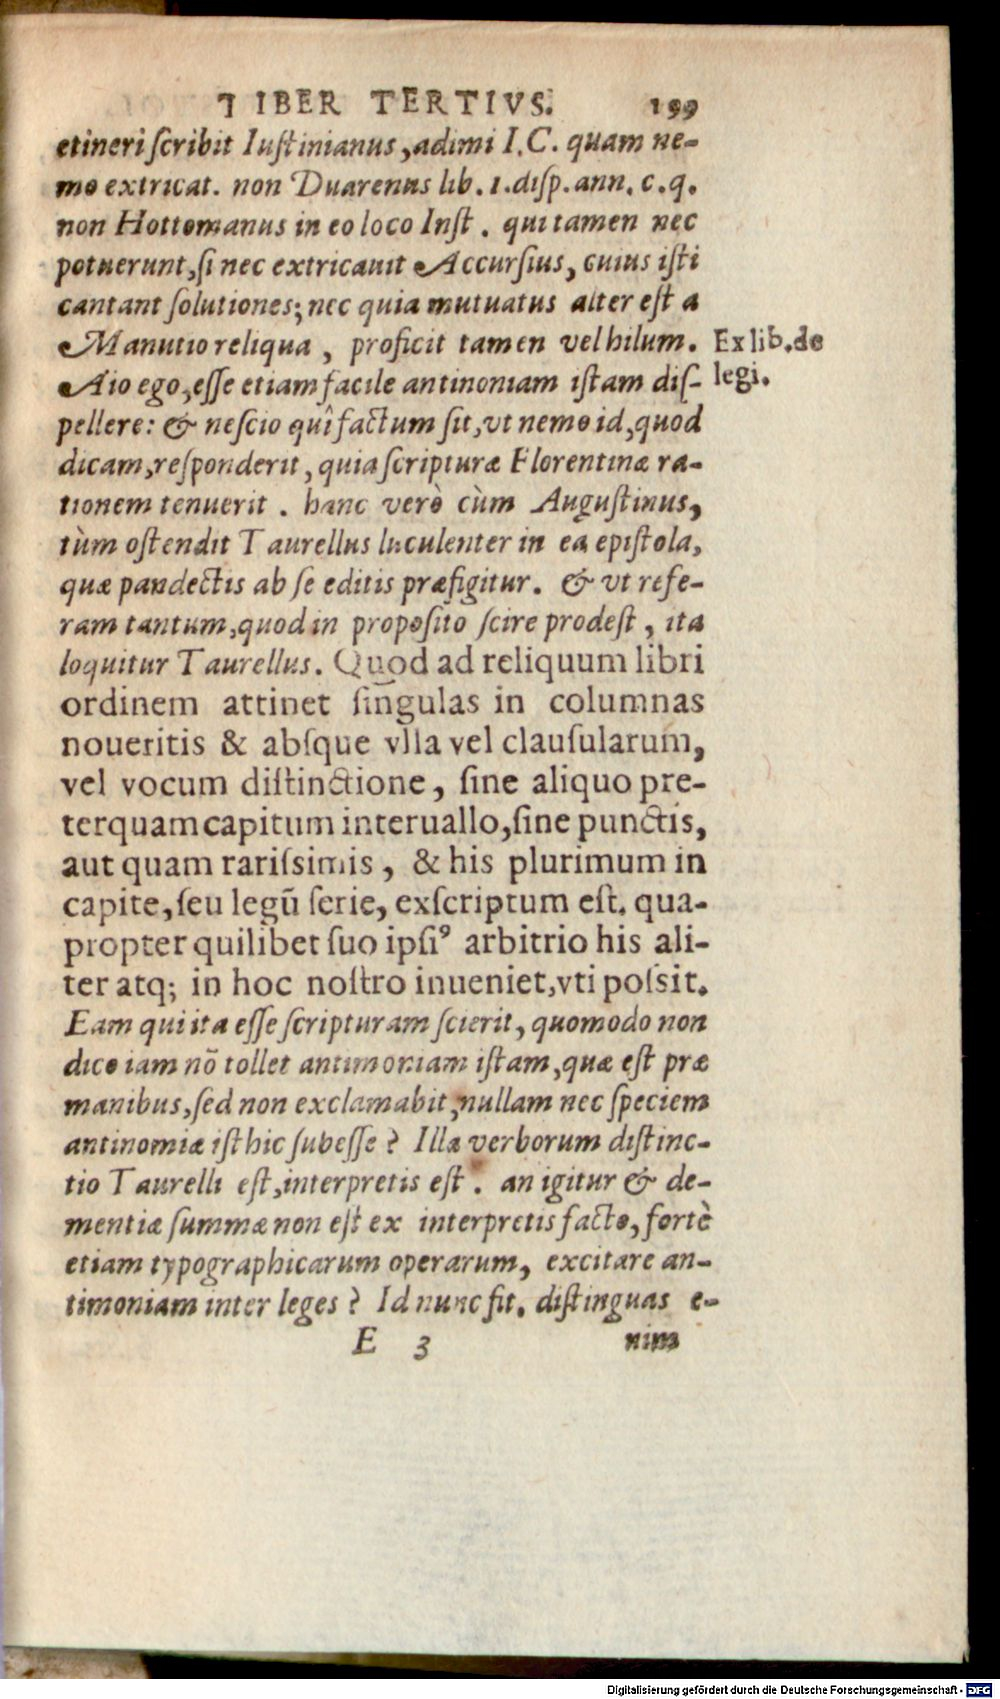 LIBER TERTIVS. 199
etineri ſcribit Iuſtinianus, adimi I.C. quam ne-
mo extricat. non Duarenus lib. 1. diſp. ann. c. q.
non Hottomanus in eo loco Inſt. qui tamen nec
potuerunt, ſi nec extricauit Accurſius, cuius iſti
cantant ſolutiones; nec quia mutuatus alter eſt a
Manutio reliqua, proficit tamen vel hilum.
Ex lib. de
legi.
Aio ego, eſſe etiam facile antinoniam iſtam diſ-
pellere: & neſcio quî factum ſit, vt nemo id, quod
dicam, reſponderit, quia ſcripturæ Florentinæ ra-
tionem tenuerit. hanc verò cùm Auguſtinus,
tùm oſtendit Taurellus luculenter in ea epiſtola,
quæ pandectis ab ſe editis præfigitur. & vt refe-
ram tantum, quod in propoſito ſcire prodeſt, ita
loquitur Taurellus. Quod ad reliquum libri
ordinem attinet ſingulas in columnas
noueritis & abſque vlla vel clauſularum,
vel vocum diſtinctione, ſine aliquo pre-
terquam capitum interuallo, ſine punctis,
aut quam rariſsimis, & his plurimum in
capite, ſeu legū ſerie, exſcriptum eſt. qua-
propter quilibet ſuo ipſiꝰ arbitrio his ali-
ter atq; in hoc noſtro inueniet, vti poſsit.
Eam qui ita eſſe ſcripturam ſcierit, quomodo non
dico iam nō tollet antimoniam iſtam, quæ eſt præ
manibus, ſed non exclamabit, nullam nec ſpeciem
antinomiæ iſthic ſubeſſe? Illa verborum diſtinc-
tio Taurelli eſt, interpretis eſt. an igitur & de-
mentiæ ſummæ non eſt ex interpretis facto, fortè
etiam typographicarum operarum, excitare an-
timoniam inter leges? Id nunc fit. diſtinguas e-
E 3 nim
Digitalisierung gefördert durch die Deutsche Forschungsgemeinschaft - DFG